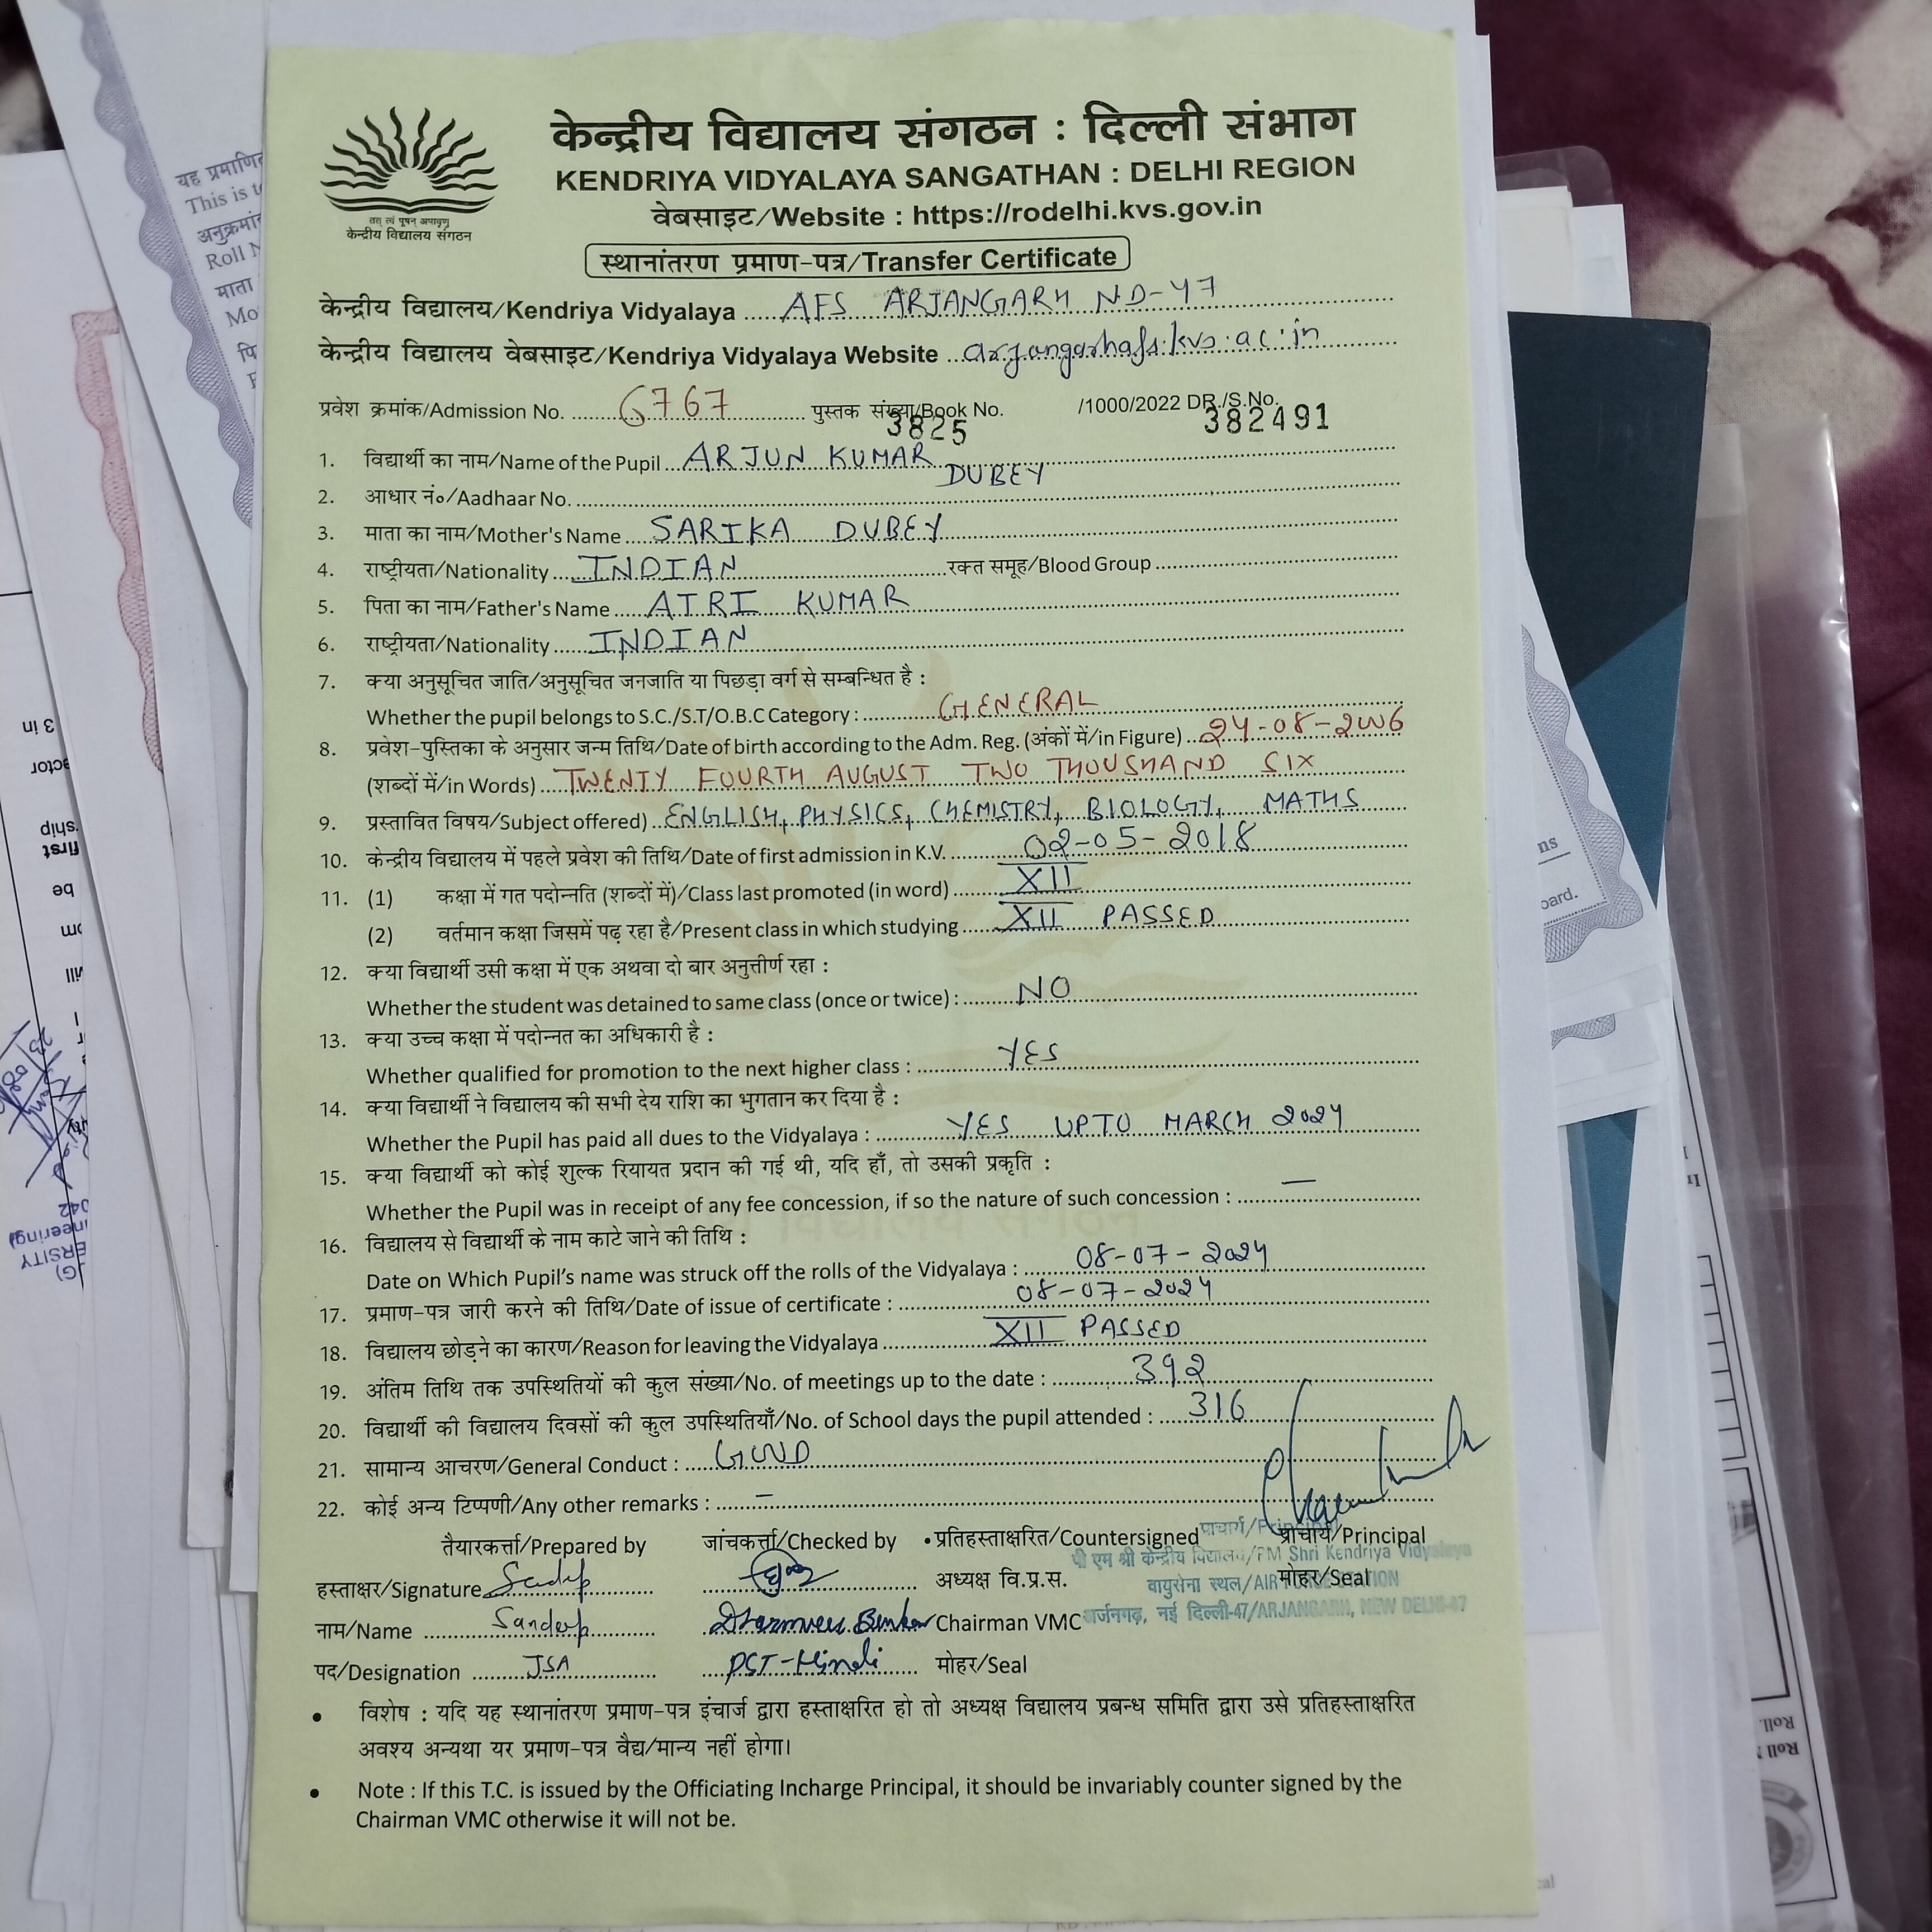 केन्द्रीय विद्यालय संगठन : दिल्ली संभाग
KENDRIYA VIDYALAYA SANGATHAN : DELHI REGION
वेबसाइट/Website : https://rodelhi.kvs.gov.in
तत् त्वं पूषन् अपावृणु
केन्द्रीय विद्यालय संगठन
स्थानांतरण प्रमाण-पत्र/Transfer Certificate
केन्द्रीय विद्यालय/Kendriya Vidyalaya AFS ARJANGARH ND-47
केन्द्रीय विद्यालय वेबसाइट/Kendriya Vidyalaya Website arjangarhafs.kvs.ac.in
प्रवेश क्रमांक/Admission No. 6767 पुस्तक संख्या/Book No. 3825 /1000/2022 DR./S.No. 382491
1. विद्यार्थी का नाम/Name of the Pupil ARJUN KUMAR DUBEY
2. आधार नं०/Aadhaar No.
3. माता का नाम/Mother's Name SARIKA DUBEY
4. राष्ट्रीयता/Nationality INDIAN रक्त समूह/Blood Group
5. पिता का नाम/Father's Name ATRI KUMAR
6. राष्ट्रीयता/Nationality INDIAN
7. क्या अनुसूचित जाति/अनुसूचित जनजाति या पिछड़ा वर्ग से सम्बन्धित है :
Whether the pupil belongs to S.C./S.T/O.B.C Category : GENERAL
8. प्रवेश-पुस्तिका के अनुसार जन्म तिथि/Date of birth according to the Adm. Reg. (अंकों में/in Figure) 24-08-2006
(शब्दों में/in Words) TWENTY FOURTH AUGUST TWO THOUSHAND SIX
9. प्रस्तावित विषय/Subject offered) ENGLISH, PHYSICS, CHEMISTRY, BIOLOGY, MATHS
10. केन्द्रीय विद्यालय में पहले प्रवेश की तिथि/Date of first admission in K.V. 02-05-2018
11. (1) कक्षा में गत पदोन्नति (शब्दों में)/Class last promoted (in word) XII
(2) वर्तमान कक्षा जिसमें पढ़ रहा है/Present class in which studying XII PASSED
12. क्या विद्यार्थी उसी कक्षा में एक अथवा दो बार अनुत्तीर्ण रहा :
Whether the student was detained to same class (once or twice) : NO
13. क्या उच्च कक्षा में पदोन्नत का अधिकारी है :
Whether qualified for promotion to the next higher class : YES
14. क्या विद्यार्थी ने विद्यालय की सभी देय राशि का भुगतान कर दिया है :
Whether the Pupil has paid all dues to the Vidyalaya : YES UPTO MARCH 2024
15. क्या विद्यार्थी को कोई शुल्क रियायत प्रदान की गई थी, यदि हाँ, तो उसकी प्रकृति :
Whether the Pupil was in receipt of any fee concession, if so the nature of such concession : —
16. विद्यालय से विद्यार्थी के नाम काटे जाने की तिथि :
Date on Which Pupil's name was struck off the rolls of the Vidyalaya : 08-07-2024
17. प्रमाण-पत्र जारी करने की तिथि/Date of issue of certificate : 08-07-2024
18. विद्यालय छोड़ने का कारण/Reason for leaving the Vidyalaya XII PASSED
19. अंतिम तिथि तक उपस्थितियों की कुल संख्या/No. of meetings up to the date : 392
20. विद्यार्थी की विद्यालय दिवसों की कुल उपस्थितियाँ/No. of School days the pupil attended : 316
21. सामान्य आचरण/General Conduct : GOOD
22. कोई अन्य टिप्पणी/Any other remarks : —
तैयारकर्त्ता/Prepared by जांचकर्त्ता/Checked by • प्रतिहस्ताक्षरित/Countersigned प्राचार्य/Principal
पी एम श्री केन्द्रीय विद्यालय/PM Shri Kendriya Vidyalaya
हस्ताक्षर/Signature Sandeep अध्यक्ष वि.प्र.स. मोहर/Seal
वायुसेना स्थल/AIR FORCE STATION
अर्जनगढ़, नई दिल्ली-47/ARJANGARH, NEW DELHI-47
नाम/Name Sandeep Chairman VMC
पद/Designation JSA PGT-Hindi मोहर/Seal
• विशेष : यदि यह स्थानांतरण प्रमाण-पत्र इंचार्ज द्वारा हस्ताक्षरित हो तो अध्यक्ष विद्यालय प्रबन्ध समिति द्वारा उसे प्रतिहस्ताक्षरित
अवश्य अन्यथा यर प्रमाण-पत्र वैद्य/मान्य नहीं होगा।
• Note : If this T.C. is issued by the Officiating Incharge Principal, it should be invariably counter signed by the
Chairman VMC otherwise it will not be.